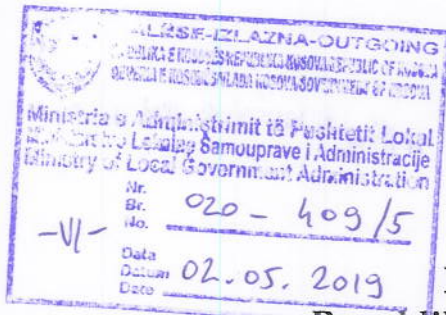 DALËSE-IZLAZNA-OUTGOING
REPUBLIKA E KOSOVËS-REPUBLIKA KOSOVA-REPUBLIC OF KOSOVA
QEVERIA E KOSOVËS-VLADA KOSOVA-GOVERNMENT OF KOSOVA
Ministria e Administrimit të Pushtetit Lokal
Lokalne Samouprave i Administracije
Ministry of Local Government Administration
Nr.
Br.
No. 020-409/5
-VI-
Data
Datum
Date 02.05.2019